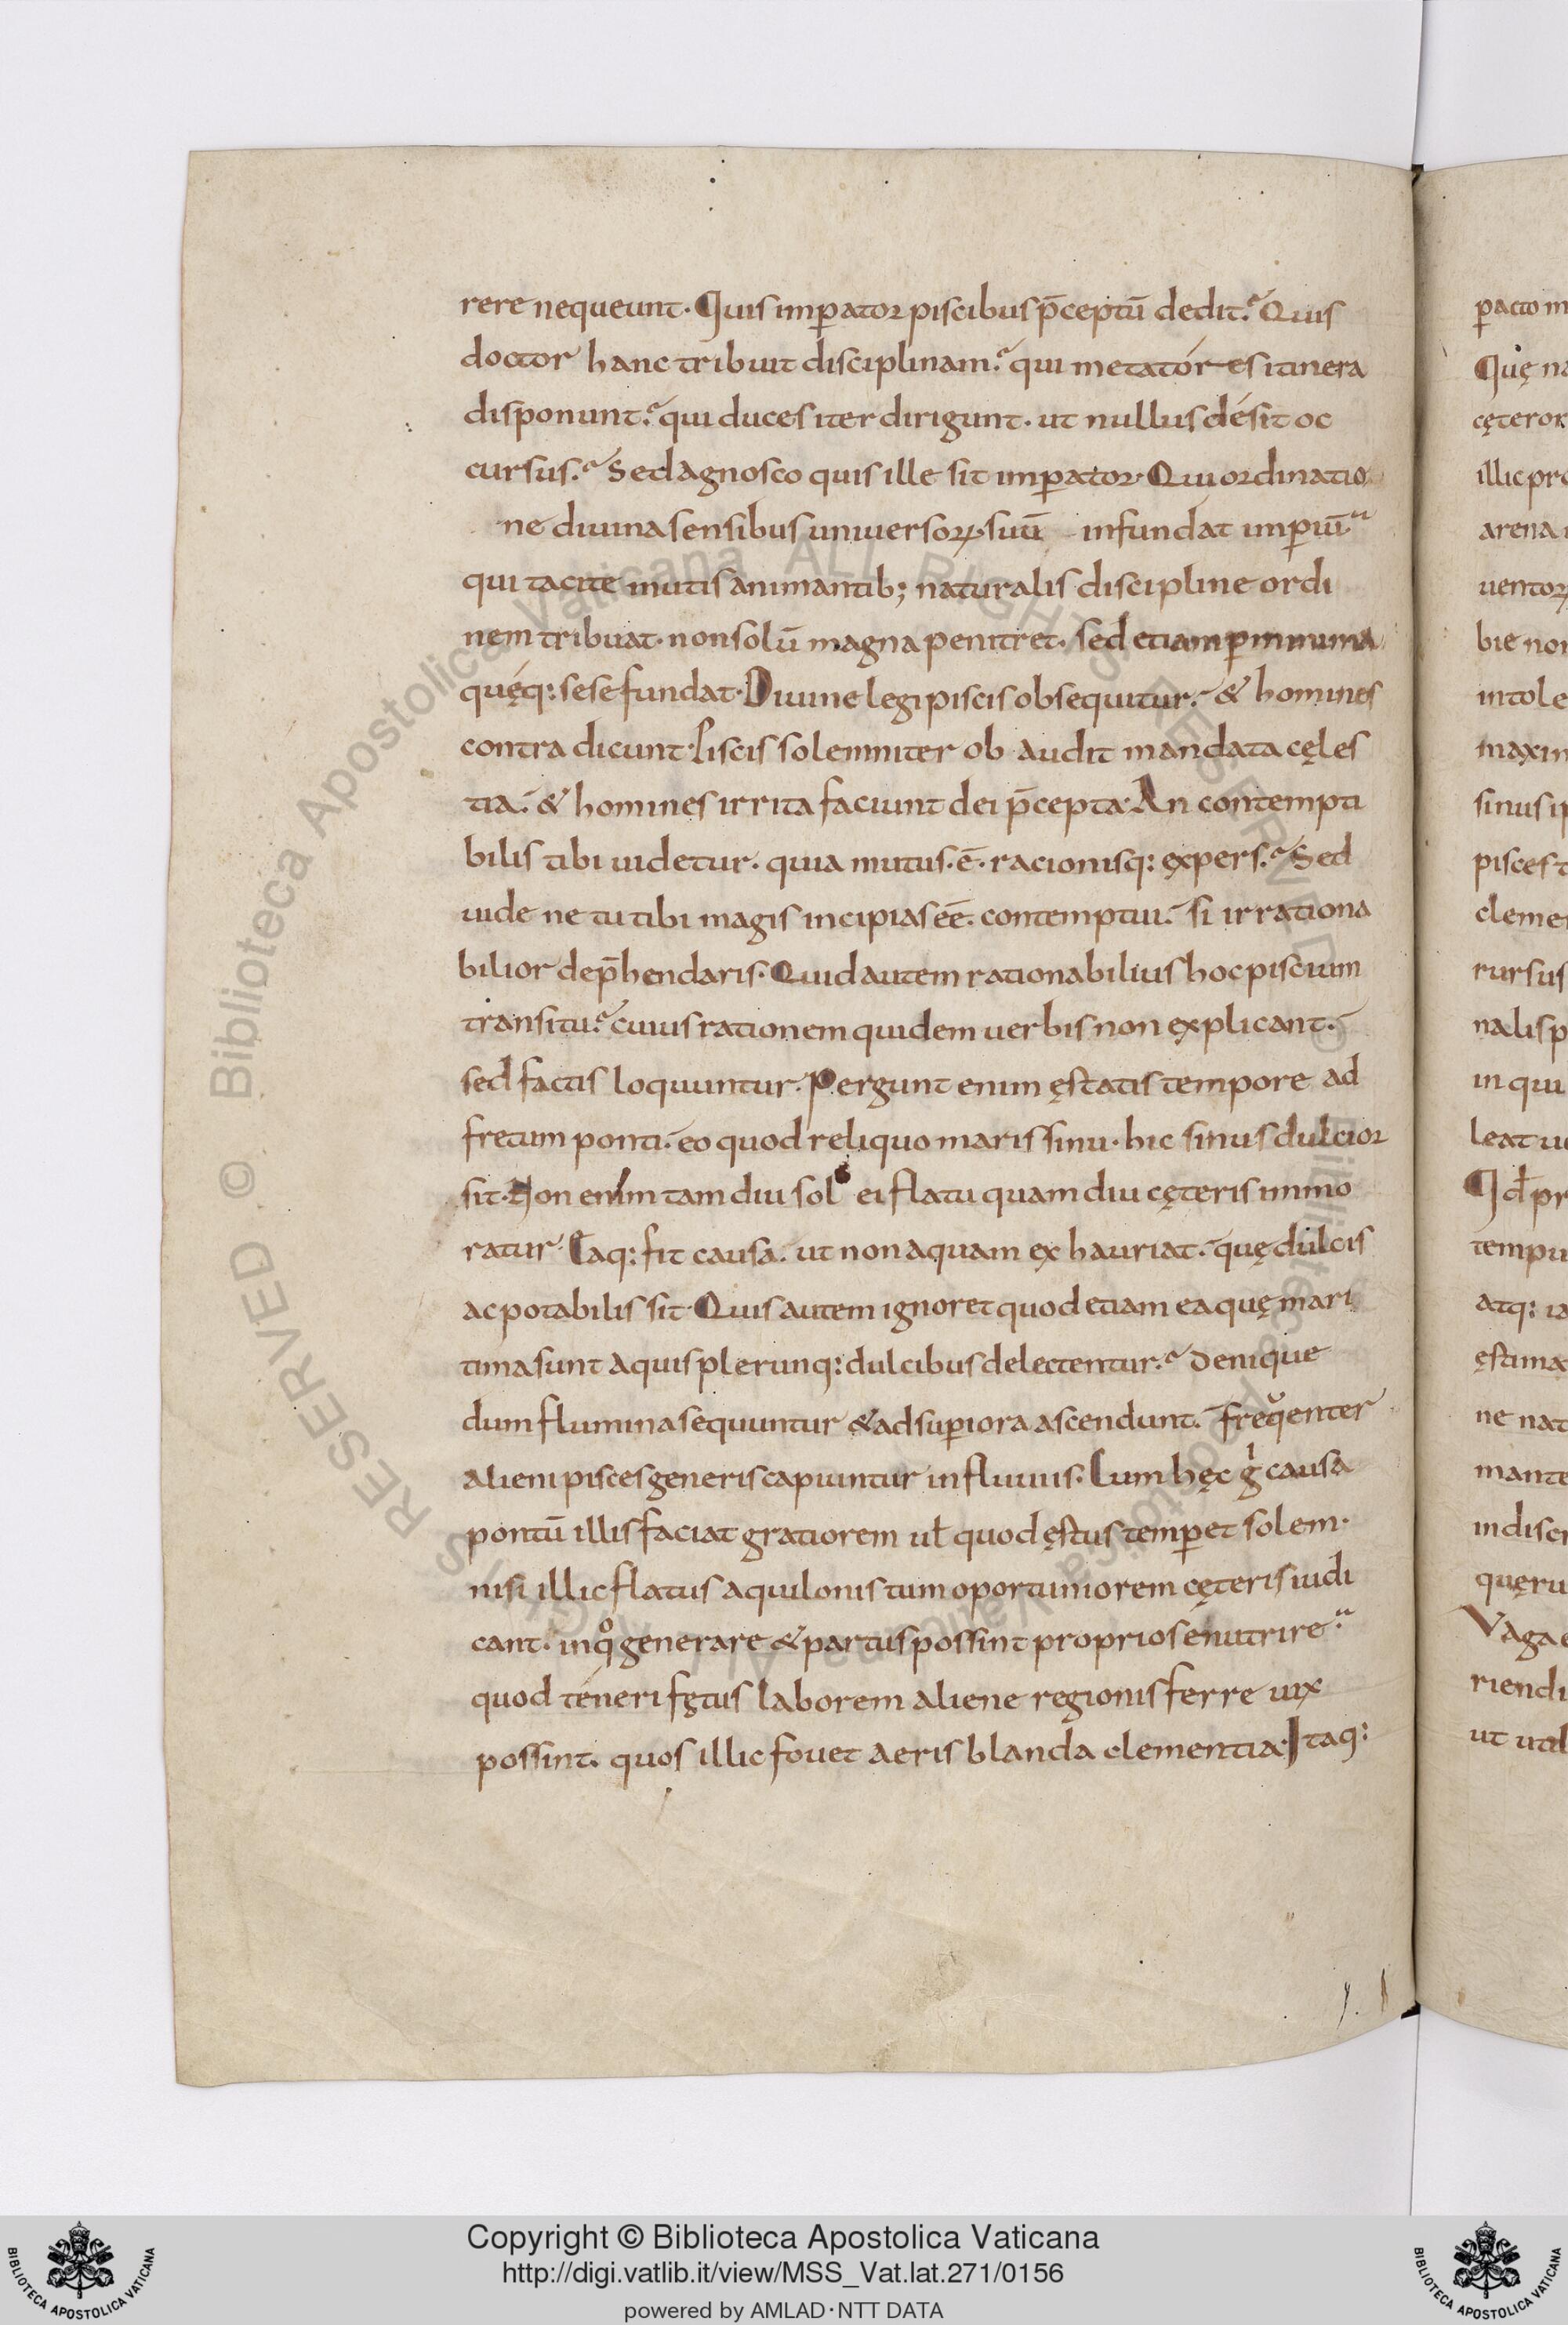 rere nequeunt. Quis imp̱ator piscibus p̄ceptū dedit? Quis
doctor hanc tribuit disciplinam? qui metatóres itinera
disponunt? qui duces iter dirigunt. ut nullus désit oc
cursus? Sed agnosco quis ille sit imꝑator. Qui ordinatio
ne diuina sensibus uniuersoꝝ suū infundat imꝑiū
qui tacite mutis animantib; naturalis discipline ordi
nem tribuat. non solū magna penitret. sed etiam ꝑ minima
quęq: sese fundat. Diuine legi piscis obsequitur. & homines
contra dicunt. Piscis solemniter ob audit mandata cęles
tia. & homines irrita faciunt dei p̄cepta. An contempti
bilis tibi uidetur. quia mutus .ē. racionisq: expers? Sed
uide ne tu tibi magis incipias eē. contemptui. si irrationa
bilior dep̄hendaris. Quid autem rationabilius hoc piscium
transitu? cuius rationem quidem uerbis non explicant.
sed factis loquuntur. Pergunt enim ęstatis tempore ad
fretum ponti. eo quod reliquo maris sinu. hic sinus dulcior
sit. Non enim tam diu sol ei flatu quam diu cęteris immo
ratur. Eaq: fit causa. ut non aquam ex hauriat. quę dulcis
ac potabilis sit. Quis autem ignoret quod etiam ea quę mari
tima sunt aquis plerunq: dulcibus delectentur? denique
dum flumina sequuntur & ad suꝑiora ascendunt. freqͧenter
alieni pisces generis capiuntur in fluuiis. Cum hęc gͥ causa
pontū illis faciat gratiorem ul̄ quod ęstus temꝑet solem.
nisi illic flatus aquilonis tum oportuniorem cęteris iudi
cant. in qͦ generare & partus possint proprios enutrire.
quod téneri fętus laborem aliene regionis ferre uix
possint. quos illic fouet aeris blanda clementia. Itaq:
ꝑacto
Quę
cęteror
illic
arena
uentoꝝ
bie
maxim
sinus
pisces
rursus
nalis
in qui
leat
tempu
atq:
ne
mante
quęru
riendi
ut
Copyright © Biblioteca Apostolica Vaticana
http://digi.vatlib.it/view/MSS_Vat.lat.271/0156
powered by AMLAD·NTT DATA
BIBLIOTECA APOSTOLICA VATICANA
BIBLIOTECA APOSTOLICA VATICANA